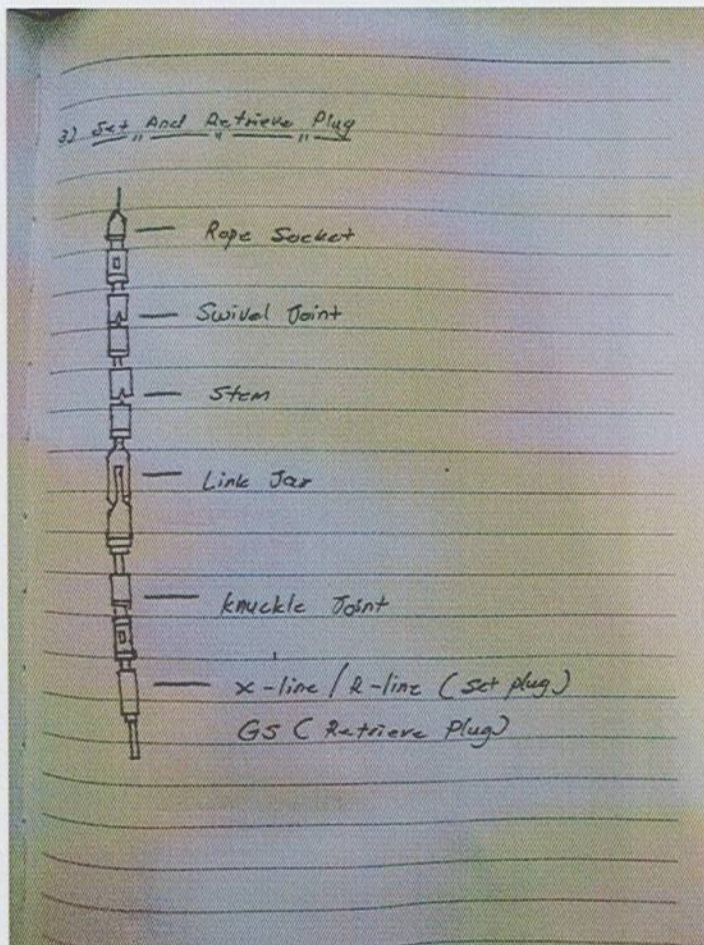 3) Set And Retrieve Plug
Rope Socket
Swivel Joint
Stem
Link Jar
knuckle Joint
x-line / R-line (set plug)
GS (Retrieve Plug)